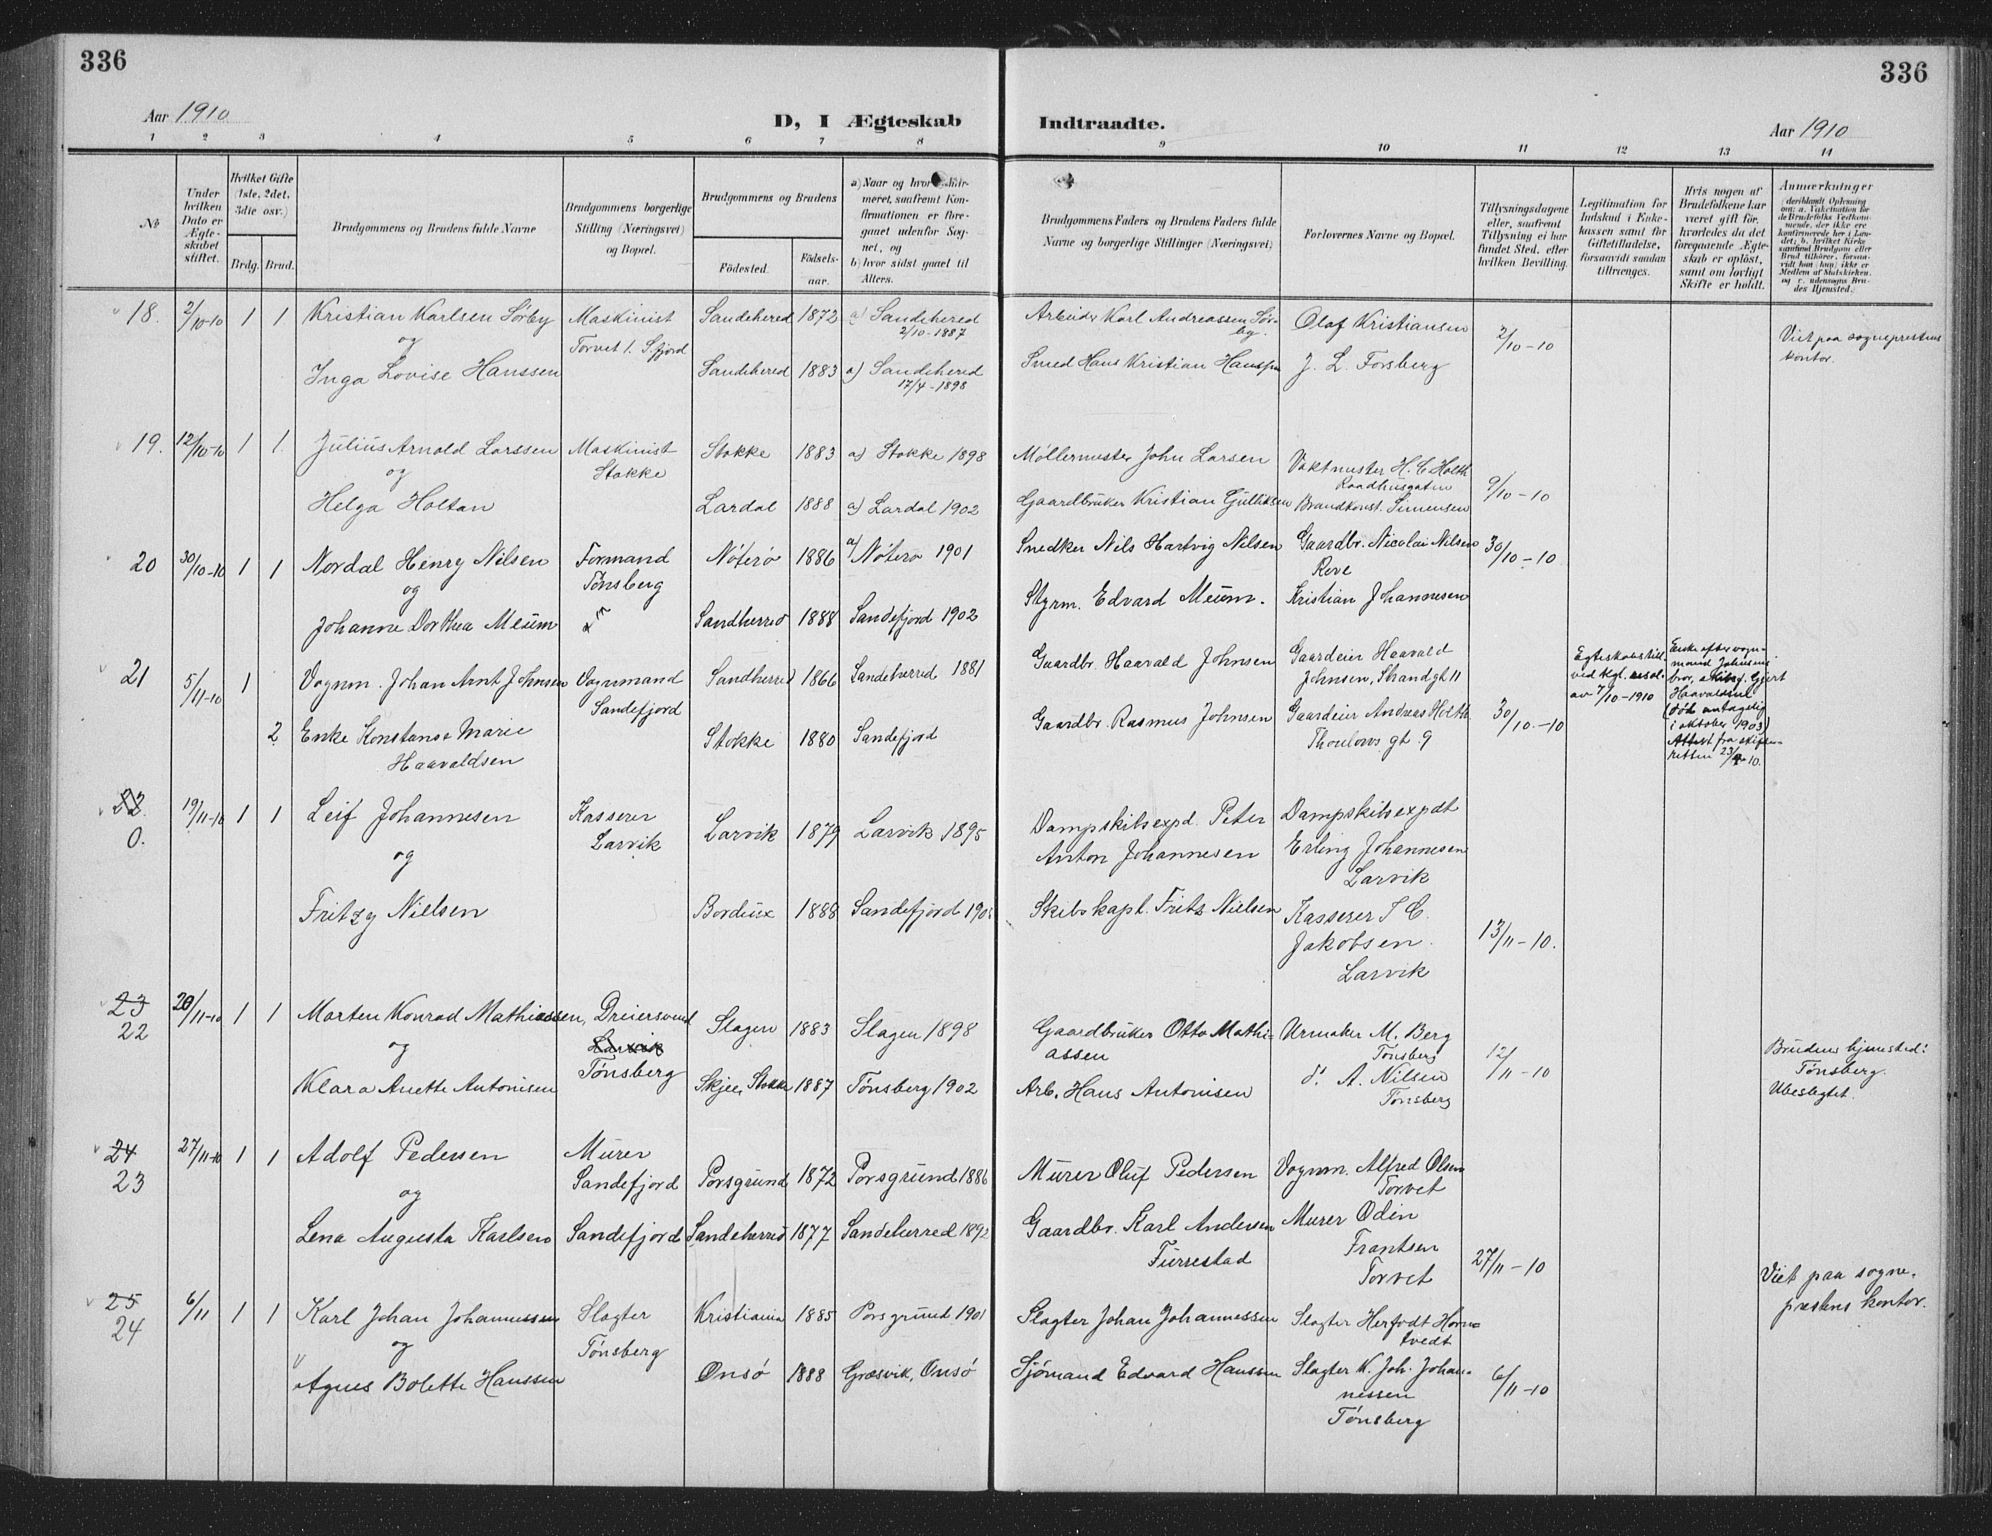 336
336
Aar 1910
D, I Ægteskab Indtraadte.
Aar 1910
1 2 3 4 5 6 7 8 9 10 11 12 13 14
No
Under hvilken Dato er Ægteskabet stiftet.
Hvilket Gifte (1ste, 2det, 3die osv.)
Brdg. Brud.
Brudgommens og Brudens fulde Navne
Brudgommens borgerlige Stilling (Næringsvei) og Bopæl.
Brudgommens og Brudens
Fødested.
Fødselsaar.
a) Naar og hvor confirmeret, saafremt Konfirmationen er foregaaet udenfor Sognet, og
b) hvor sidst gaaet til Alters.
Brudgommens Faders og Brudens Faders fulde Navne og borgerlige Stillinger (Næringsvei)
Forlovernes Navne og Bopæl.
Tillysningsdagene eller, saafremt Tillysning ei har fundet Sted, efter hvilken Bevilling.
Legitimation for Indskud i Enkekassen samt for Giftetilladelse, forsaavidt saadan tiltrænges.
Hvis nogen af Brudefolkene har været gift før, hvorledes da det foregaaende Ægteskab er opløst, samt om lovligt Skifte er holdt.
Anmerkninger
18. 2/10-10 1 1 Kristian Karlsen Sørby Maskinist Sandehered 1872 a) Sandehered Arbeider Karl Andreassen Sørby. Olaf Kristiansen 2/10-10 Viet paa sogneprestens kontor.
og Torvet 1. S.fjord 2/10-1887
Inga Lovise Hanssen Sandehered 1883 a) Sandehered Smed Hans Kristian Hanssen J. L. Forsberg
17/4-1898
19. 12/10-10 1 1. Julius Arnold Larssen Maskinist Stokke 1883 a) Stokke 1898 Møllermester John Larsen Vaktmester H. C. Holth
og Stokke Raadhusgaten 9/10-10
Helga Holtan Lardal 1888 a) Lardal 1902 Gaardbruker Kristian Gulliksen Brandkonst. Simensen
20 30/10-10 1 1 Nordal Henry Nilsen Formand Nøterø 1886 a) Nøterø 1901 Snedker Nils Hartvig Nilsen Gaardbr. Nicolai Nilsen 30/10-10
og Tønsberg Rove
Johanne Dorthea Meum Sandherred 1888 Sandefjord 1902 Styrm. Edvard Meum. Kristian Johannesen
21 5/11-10 1 Vognm. Johan Arnt Johnsen Vognmand Sandherred 1866 Sandeherred 1881 Gaardbr. Haavald Johnsen Gaardeier Haavald
Sandefjord Johnsen, Strandgt 11
2 Enke Konstanse Marie Stokke 1880 Sandefjord Gaardbr. Rasmus Johnsen Gaardeier Andreas Holth 30/10-10
Haavaldsen Thaulows gt 9
Egteskabstill.
ved kgl. resol.
av 7/10-1910
Enke efter vognmand Johnsens
bror, Gjert
Haavaldsen
(død antagelig
i oktober 1903)
Attest fra skifteretten 23/9-10.
22. 19/11-10 1 1 Leif Johannesen Kasserer Larvik 1879 Larvik 1895 Dampskibsexpd. Peter Dampskibsexpdt
0. og Larvik Anton Johannesen Erling Johannesen
Larvik
Fritzy Nielsen Bordeux 1888 Sandefjord Skibskapt. Fritz Nielsen Kasserer J C. 13/11-10.
Jakobsen.
Larvik
23 20/11-10 1 1 Morten Konrad Mathiassen, Dreiersvend Slagen 1883 Slagen 1898 Gaardbruker Otto Mathiassen Urmaker M. Berg
22 og Larvik Tønsberg 12/11-10 Brudens hjemsted:
Klara Anette Antonisen Tønsberg Skjee, Stokke 1887 Tønsberg 1902 Arb. Hans Antonisen d. A. Nilsen Tønsberg.
Tønsberg Ubeslegtet.
24 27/11-10 1 1 Adolf Pedersen Murer Porsgrund 1872 Porsgrund 1886 Murer Oluf Pedersen Vognm. Alfred Olsen
23 og Sandefjord Torvet
Lena Augusta Karlsen Sandefjord Sandeherred 1877 Sandeherred 1892 Gaardbr. Karl Andersen Murer Odin
Furrestad Frantsen 27/11-10
Torvet
25 6/11 1 1 Karl Johan Johannessen Slagter Kristiania 1885 Porsgrund 1901 Slagter Johan Johannessen Slagter Herfodt Horntvedt Viet paa sogneprestens kontor.
24 og Tønsberg
Agnes Bolette Hanssen Onsø 1888 Græsvik, Onsø Sjømand Edvard Hanssen Slagter K. Joh. Johannessen 6/11-10
Tønsberg